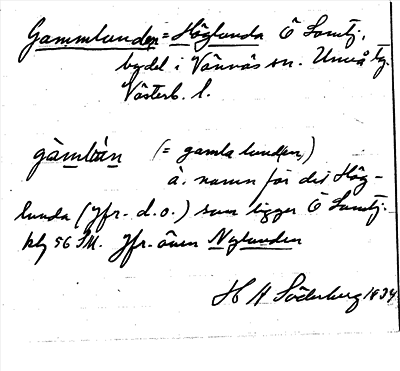 Gammlunden = Höglunda Ö Samtj.,
bydel i Vännäs sn. Umeå tg.
Västerb. l.
gàmlàn (= gamla lund(en))
ä. namn för det Hög-
lunda (jfr. d.o.) som ligger Ö Samtj.
kbl 56 Jfr. även Nylunden
H A Söderberg 1934